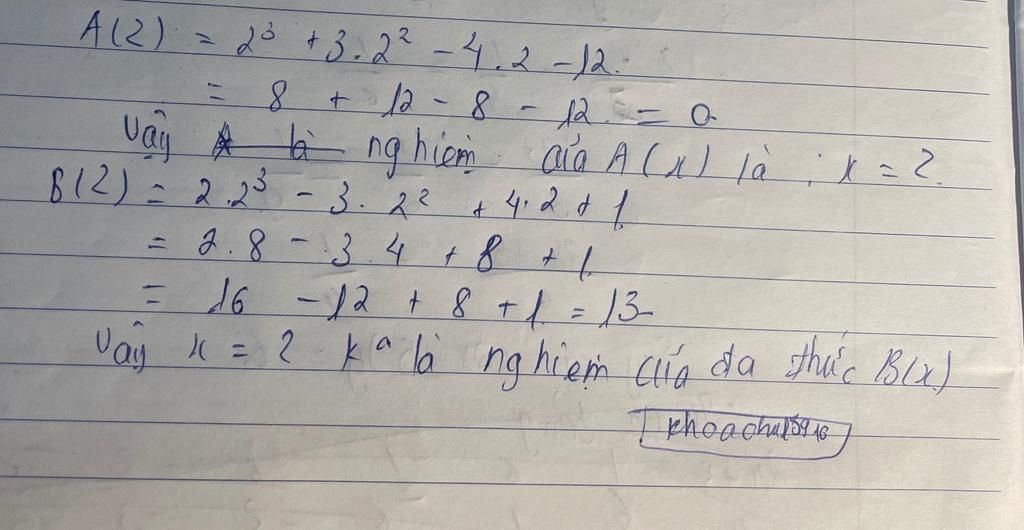 A(2) = 2³ + 3.2² - 4.2 - 12.
= 8 + 12 - 8 - 12 = 0
Vậy nghiệm của A(x) là : x = 2.
B(2) = 2.2³ - 3.2² + 4.2 + 1
= 2.8 - 3.4 + 8 + 1
= 16 - 12 + 8 + 1 = 13
Vậy x = 2 kº là nghiệm của đa thức B(x)